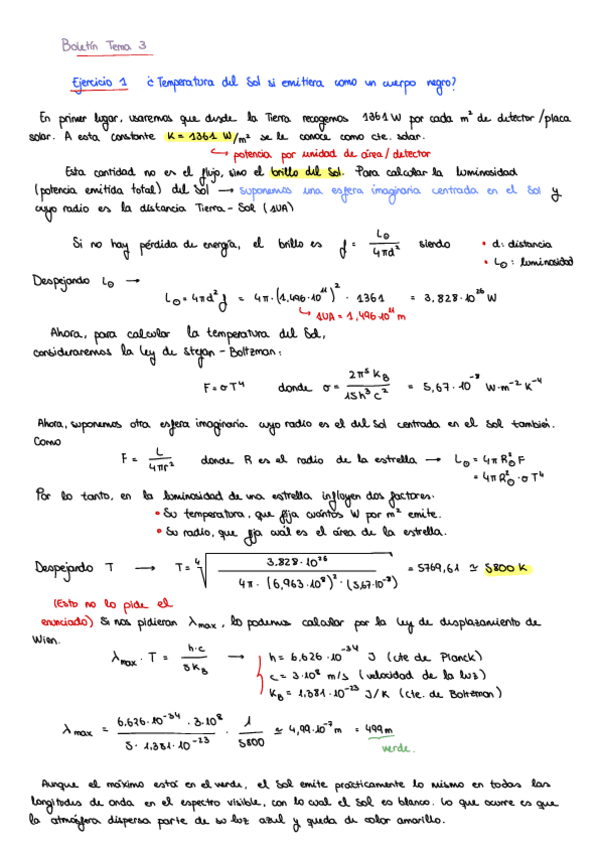 Boletín Tema 3
Ejercicio 1 ¿Temperatura del Sol si emitiera como un cuerpo negro?
En primer lugar, usaremos que desde la Tierra recogemos 1361 W por cada m² de detector/placa
solar. A esta constante K = 1361 W/m² se le conoce como cte. solar.
↳ potencia por unidad de área/detector
Esta cantidad no es el flujo, sino el brillo del Sol. Para calcular la luminosidad
(potencia emitida total) del Sol → suponemos una esfera imaginaria centrada en el Sol y
cuyo radio es la distancia Tierra-Sol (1UA)
Si no hay pérdida de energía, el brillo es f = L⊙ / 4πd² siendo • d: distancia
• L⊙: luminosidad
Despejando L⊙ →
L⊙ = 4πd² f = 4π·(1,496·10¹¹)² · 1361 = 3,828·10²⁶ W
↳ 1UA = 1,496·10¹¹ m
Ahora, para calcular la temperatura del Sol,
consideraremos la Ley de Stefan-Boltzman:
F = σT⁴ donde σ = 2π⁵ K_B / 15h³c² = 5,67·10⁻⁸ W·m⁻² K⁻⁴
Ahora, suponemos otra esfera imaginaria cuyo radio es el del Sol centrada en el Sol también.
Como
F = L / 4πr² donde R es el radio de la estrella → L⊙ = 4πR⊙² F
= 4πR⊙² · σT⁴
Por lo tanto, en la luminosidad de una estrella influyen dos factores:
• Su temperatura, que fija cuántos W por m² emite.
• Su radio, que fija cuál es el área de la estrella.
Despejando T → T = ⁴√(3,828·10²⁶ / 4π·(6,963·10⁸)²·(5,67·10⁻⁸)) = 5769,61 ≃ 5800 K
(Esto no lo pide el
enunciado) Si nos pidieran λmax, lo podemos calcular por la Ley de desplazamiento de
Wien.
λmax · T = h·c / 5K_B → h = 6,626·10⁻³⁴ J (cte de Planck)
c = 3·10⁸ m/s (velocidad de la luz)
K_B = 1,381·10⁻²³ J/K (cte. de Boltzman)
λmax = 6,626·10⁻³⁴ · 3·10⁸ / 5·1,381·10⁻²³ · 1 / 5800 ≃ 4,99·10⁻⁷ m = 499m
verde.
Aunque el máximo está en el verde, el Sol emite prácticamente lo mismo en todas las
longitudes de onda en el espectro visible, con lo cual el Sol es blanco. Lo que ocurre es que
la atmósfera dispersa parte de su luz azul y queda de color amarillo.